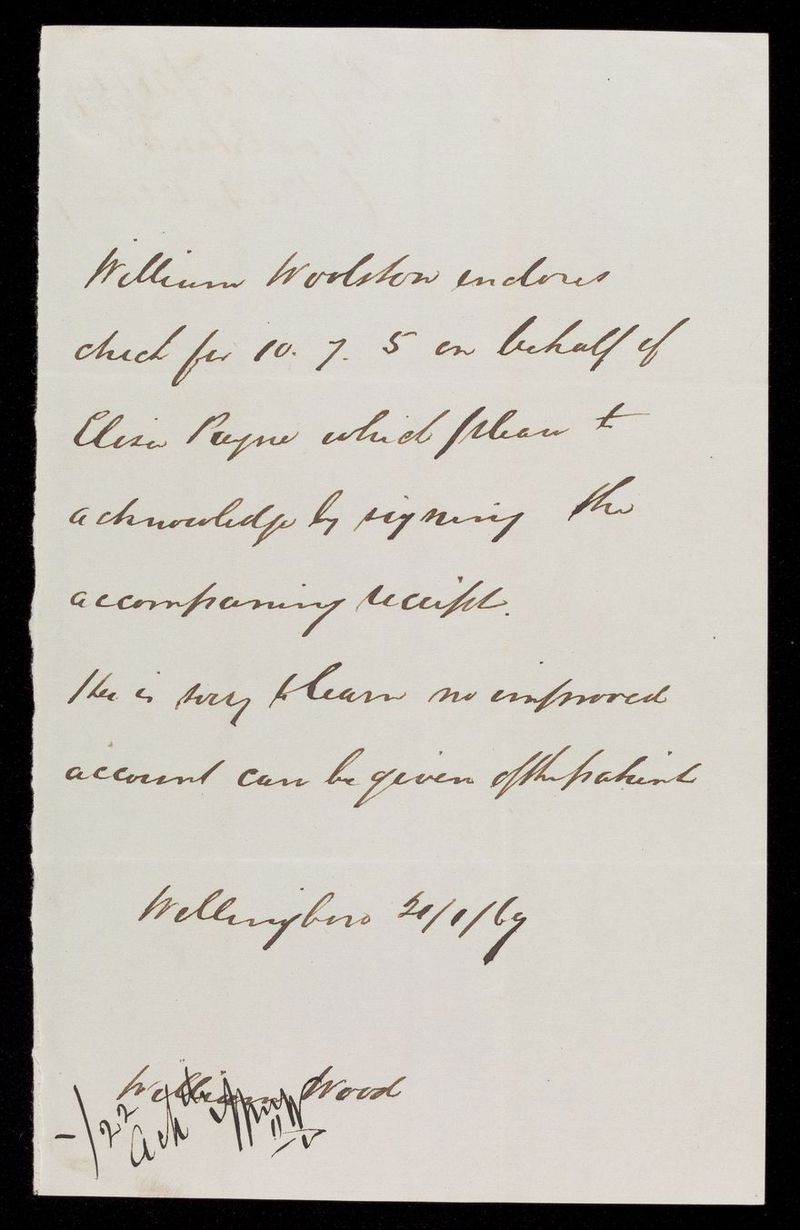 William Woolston endores
check for 10. 7. 5 on behalf of
Eliza Payne which please to
acknowledge by signing the
accompaning receipt.
He is sorry to learn no improved
account can be given of the patient
Wellingboro 21/1/69
William Wood
22
Ack